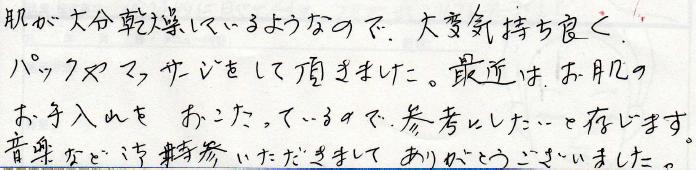 肌が大分乾燥しているようなので、大変気持ち良く、
パックやマッサージをして頂きました。最近は、お肌の
お手入れを おこたっているので、参考にしたいと存じます。
音楽などご持参いただきまして ありがとうございました。